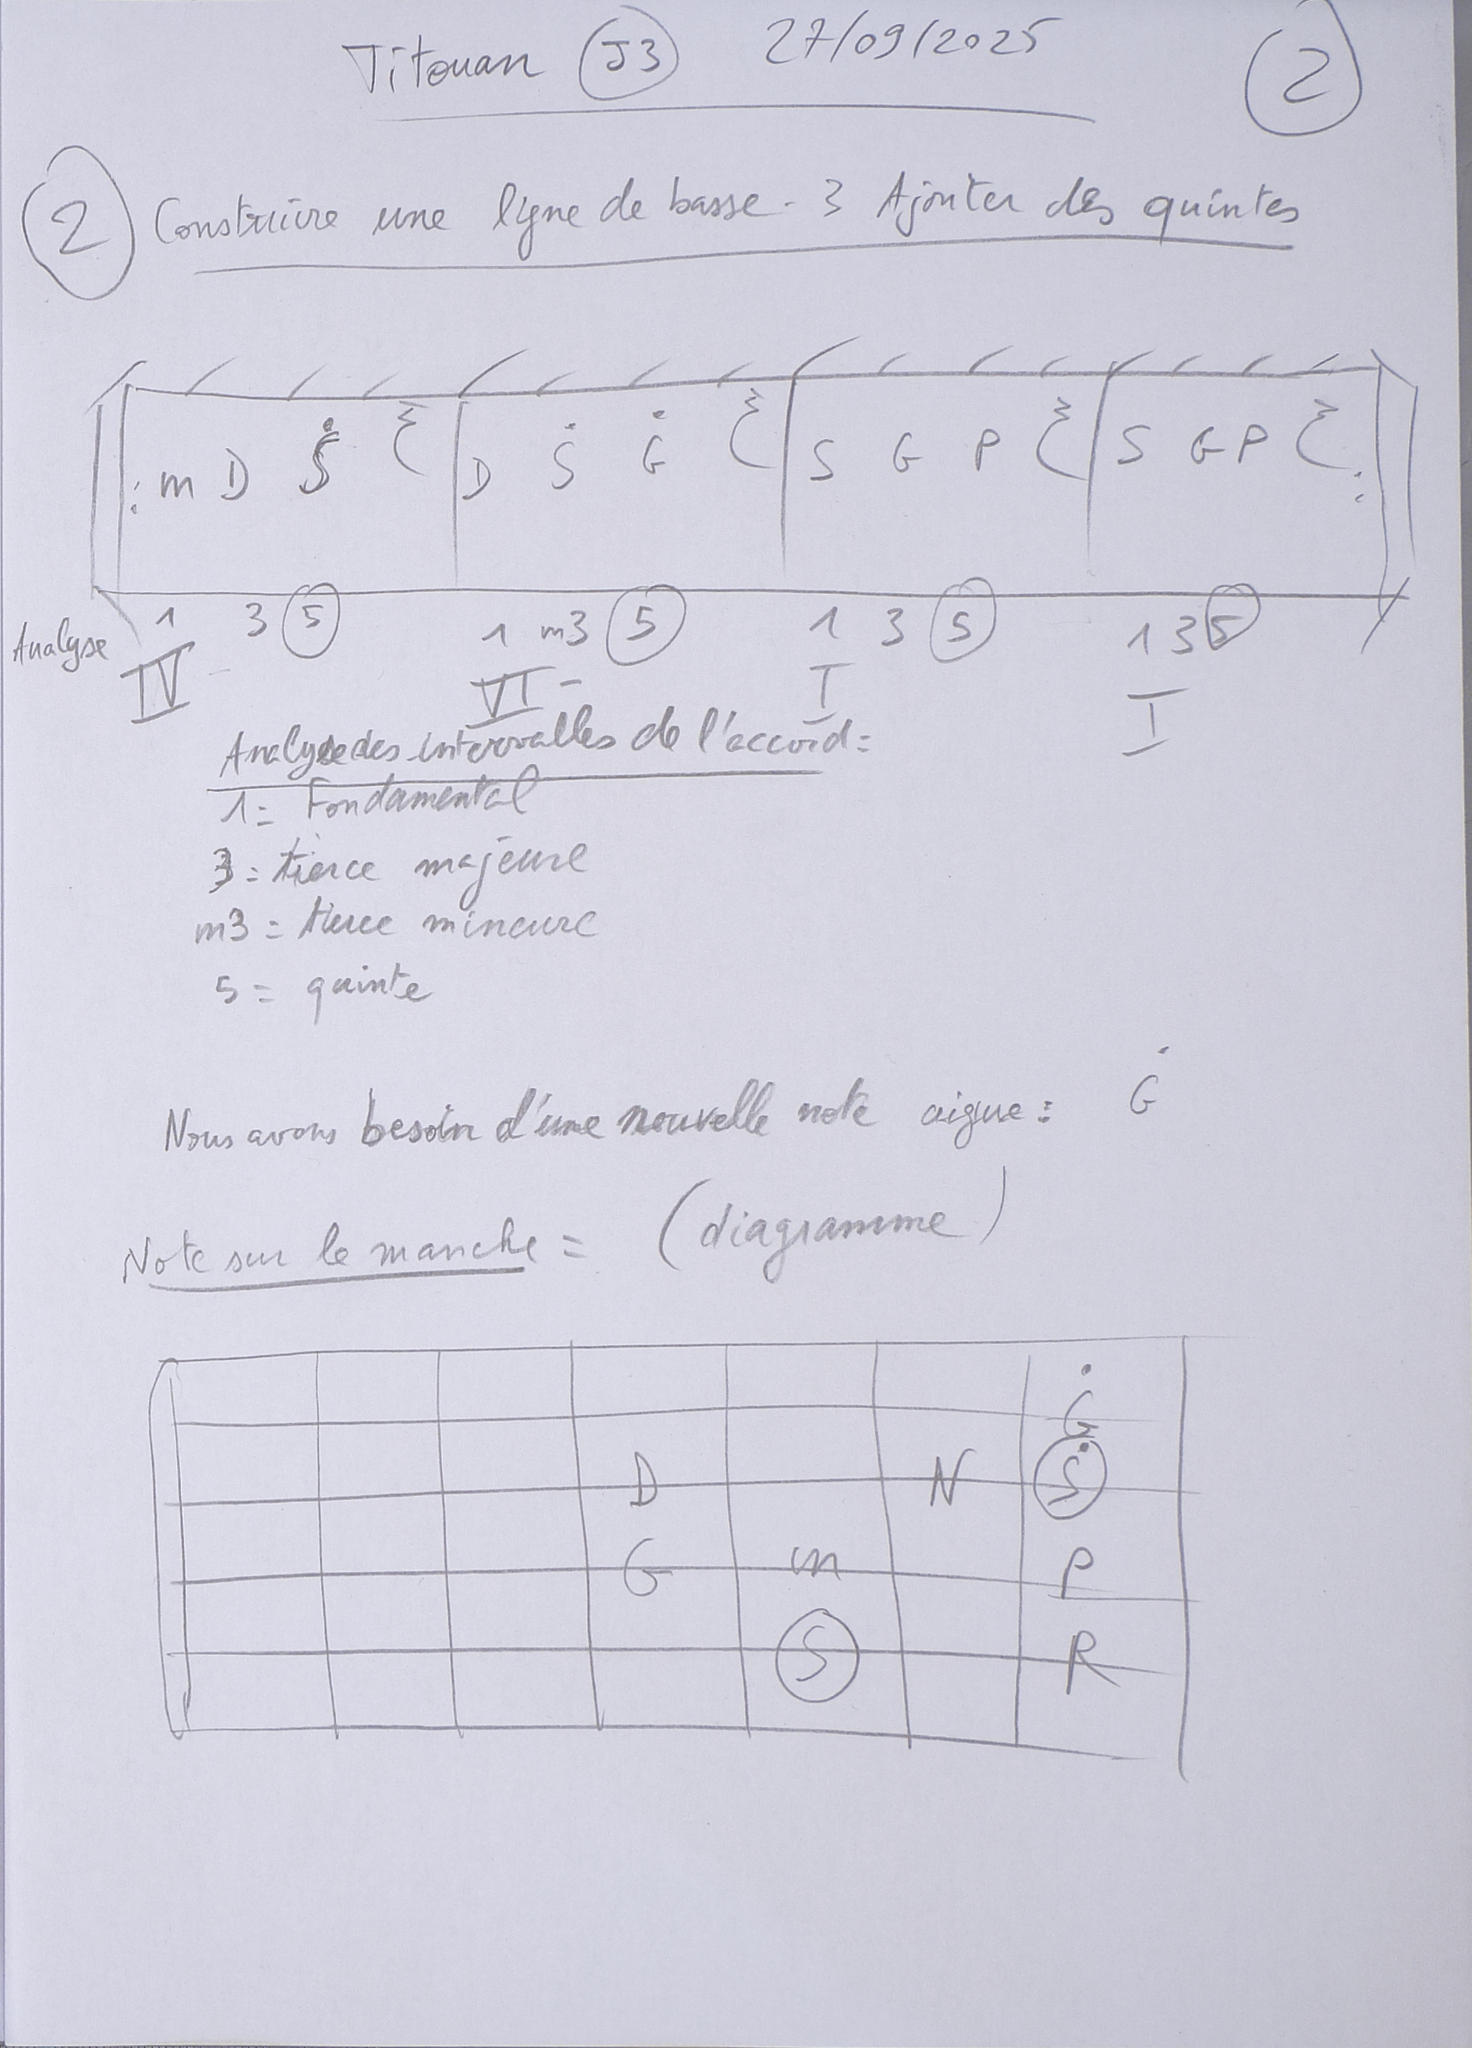 Titouan J3 27/09/2025 2
2 Construire une ligne de basse - 3 Ajouter des quintes
: m D Ṡ ξ | D Ṡ Ġ ξ | S G P ξ | S G P ξ :
Analyse 1 3 5 1 m3 5 1 3 5 1 3 5
IV VI- I I
Analyse des intervalles de l'accord =
1 = Fondamental
3 = tierce majeure
m3 = tierce mineure
5 = quinte
Nous avons besoin d'une nouvelle note aigue = Ġ
Note sur le manche = (diagramme)
Ġ
D N Ṡ
G m P
S R